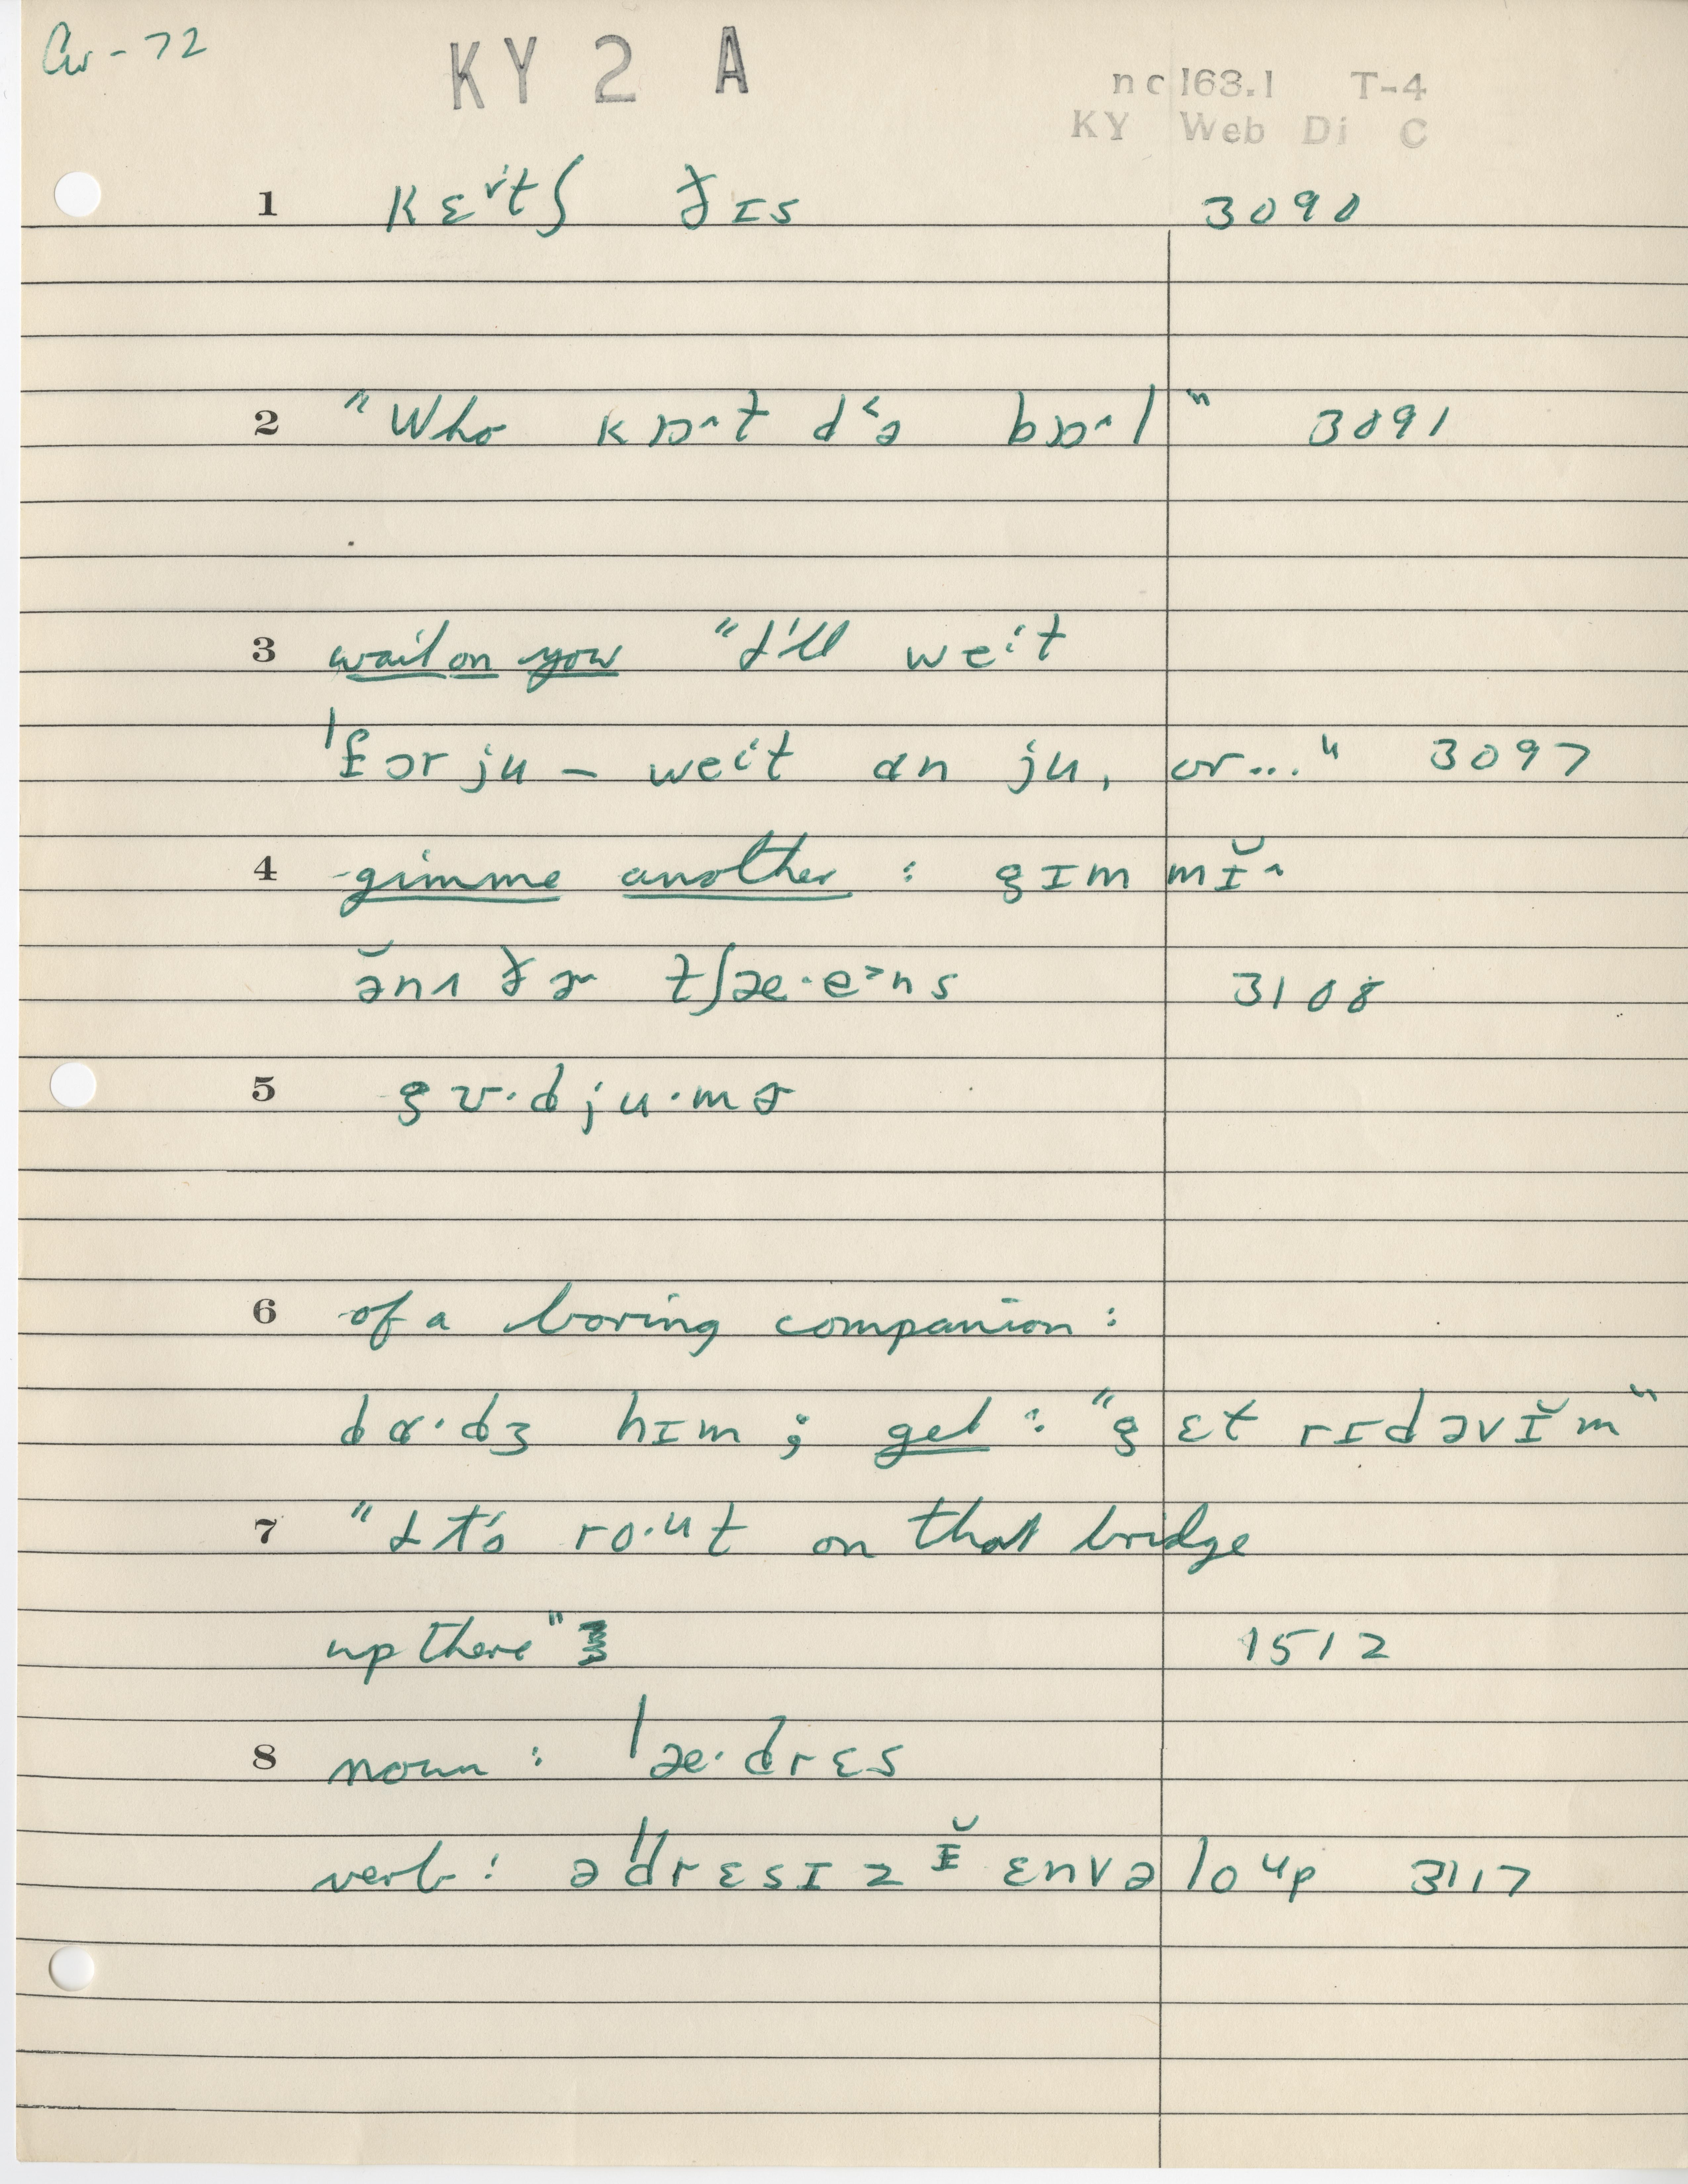 Cw-72
KY 2 A
nc163.1 T-4
KY Web Di C
1 kɛᶦtʃ ðɪs 3090
2 "Who kɒ^t d˂ə bɒ^l" 3091
3 wait on you "I'll weⁱt
ˈfɔrju – weⁱt ɑn ju, or..." 3097
4 gimme another : gɪm mɪ̆^
ə̆nʌðɚ tʃæ·e˃ns 3108
5 gʊ·dju·mɚ
6 of a boring companion :
dɑ·dʒ hɪm ; get : "gɛt rɪdəvɪ̆m"
7 "It's ro·ut on that bridge
up there" 1512
8 noun : ˈæ·drɛs
verb : əˈdrɛsɪz ɪ̆ ɛnvəloᵘp 3117